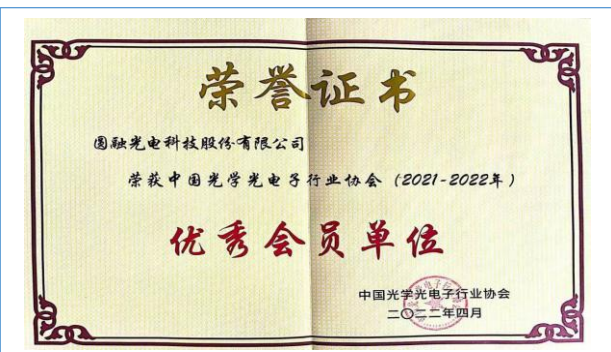 荣誉证书
圆融光电科技股份有限公司
荣获中国光学光电子行业协会（2021-2022年）
优秀会员单位
中国光学光电子行业协会
二〇二二年四月